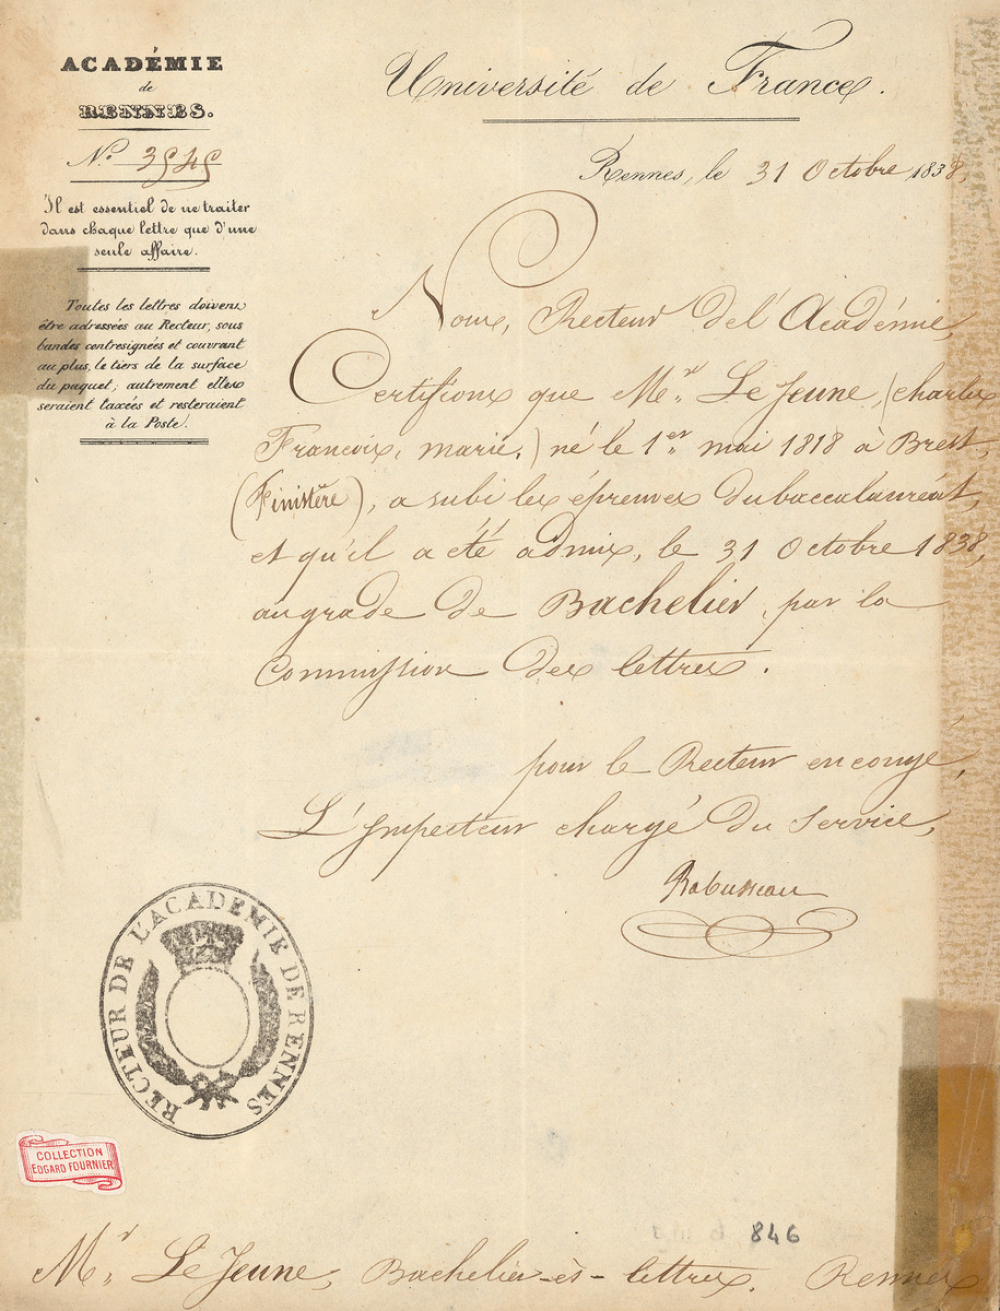 ACADÉMIE
de
RENNES.
N.º 3545
Il est essentiel de ne traiter
dans chaque lettre que d'une
seule affaire.
Toutes les lettres doivent
être adressées au Recteur, sous
bandes contresignées et couvrant
au plus, le tiers de la surface
du paquet; autrement elles
seraient taxées et resteraient
à la Poste.
Université de France.
Rennes, le 31 Octobre 1838,
Nous, Recteur de l'Académie,
Certifions que Mr. Le Jeune, (Charles
François, marie,) né le 1er mai 1818 à Brest,
(Finistère), a subi les épreuves du baccalauréat,
et qu'il a été admis, le 31 Octobre 1838,
au grade de Bachelier, par la
Commission des lettres.
pour le Recteur en congé,
L'Inspecteur chargé du Service,
Rabusseau
RECTEUR DE L'ACADEMIE DE RENNES
COLLECTION
EDGARD FOURNIER
846
Mr. Le Jeune, Bachelier-ès-lettres. Rennes